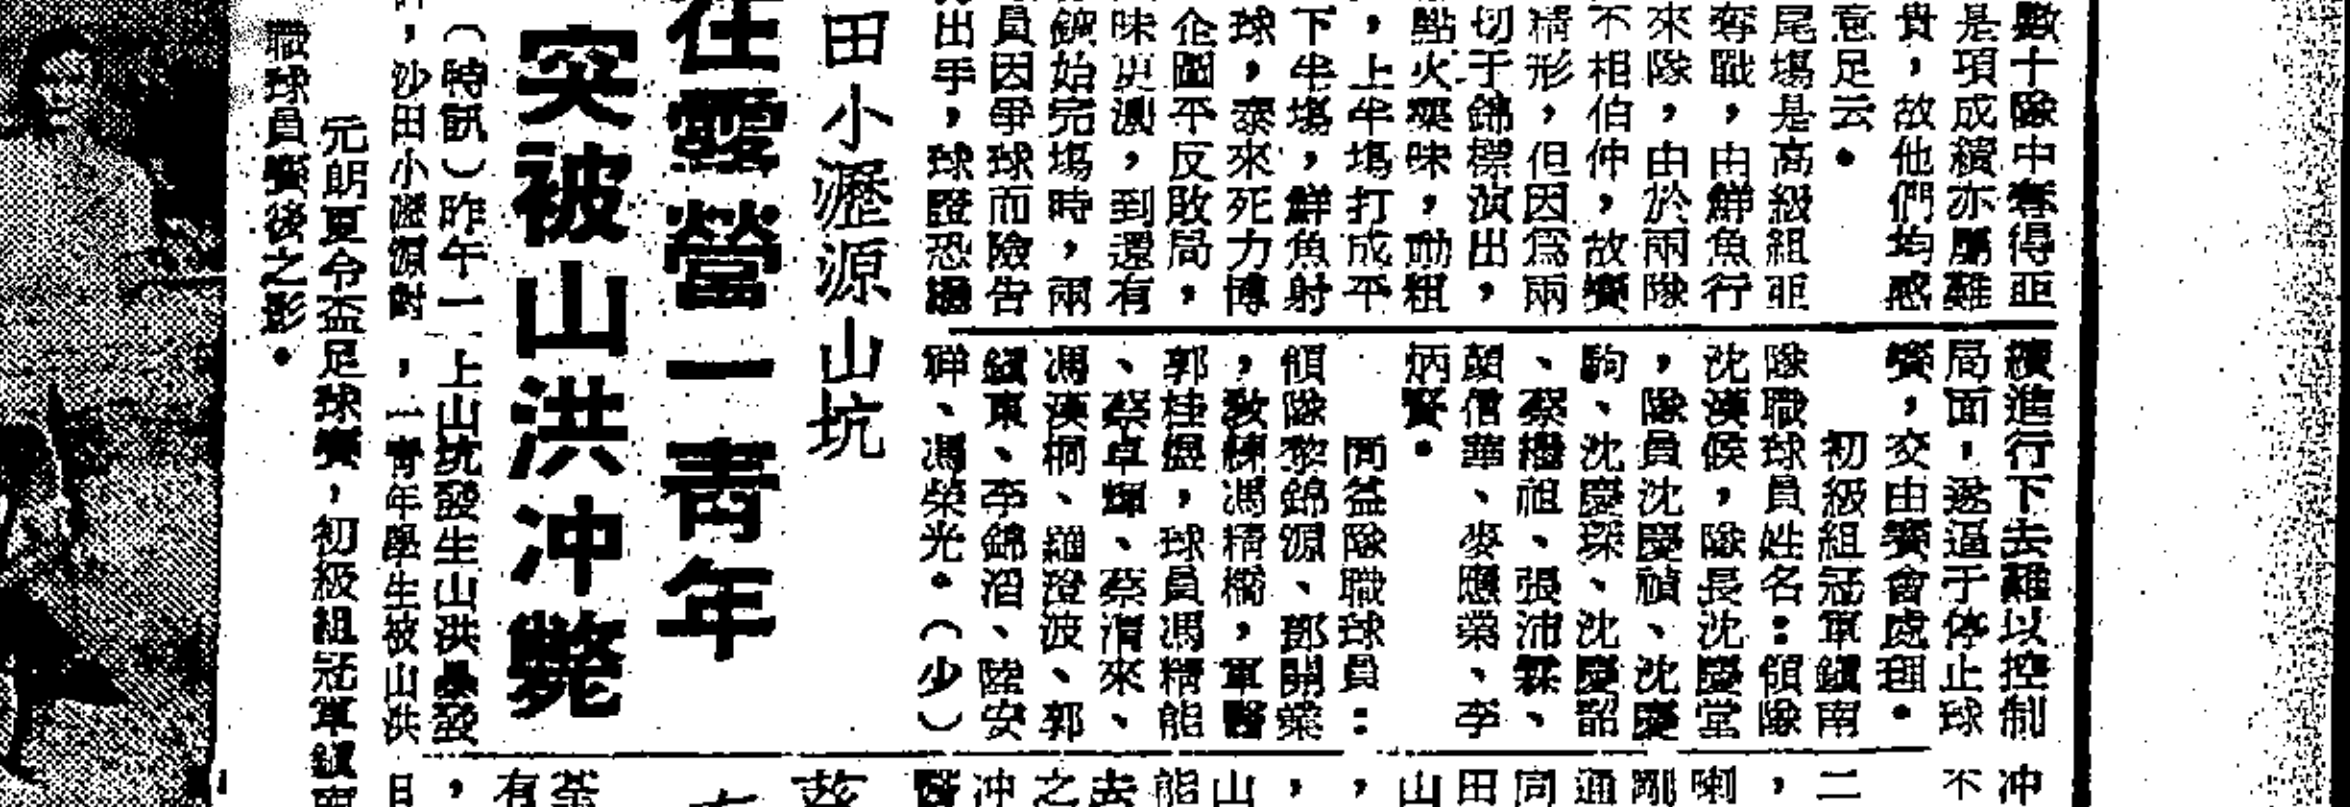 數十隊中奪得亞
是項成績亦屬難
貴，故他們均感
意足云。
尾塲是高級組亞
奪戰，由鮮魚行
來隊，由於兩隊
不相伯仲，故賽
情形，但因為兩
切于錦標演出，
點火藥味，動粗
，上半塲打成平
下半塲，鮮魚射
球，泰來死力博
企圖平反敗局，
味更濃，到還有
鐘始完塲時，兩
員因爭球而險告
出手，球證恐
續進行下去難以控制
局面，遂逼于停止球
賽，交由賽會處理。
初級組冠軍鎮南
隊職球員姓名：領隊
沈漢侯，隊長沈慶堂
，隊員沈慶禎、沈慶
駒、沈慶琛、沈慶韶
、蔡繼祖、張沛霖、
顏信華、麥應業、李
炳賢。
同益隊職球員：
領隊黎錦源、鄧開業
，教練馮精橋，軍醫
郭桂盤，球員馮精能
、蔡卓輝、蔡渭來、
馮漢桐、羅澄波、郭
鎮東、李錦滔、陸安
祥、馮榮光。（少）
田小瀝源山坑
在露營一青年
突被山洪冲斃
（特訊）昨午一
，沙田小瀝源附
上山坑發生山洪暴發
，一青年學生被山洪
元朗夏令盃足球賽，初級組冠軍鎮南
職球員賽後之影。
冲
不
二
，
喇
剛
通
同
田
山
，
，
山
能
去
之
冲
賢
荃
有
，